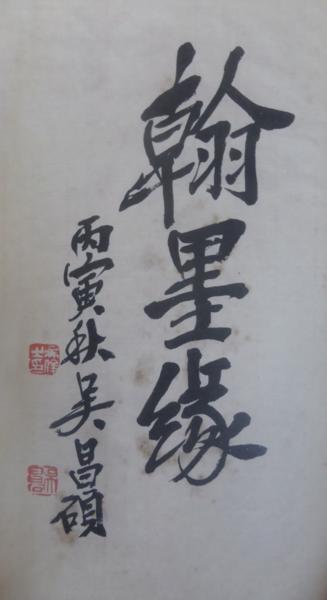 翰墨缘
丙寅秋吴昌碩